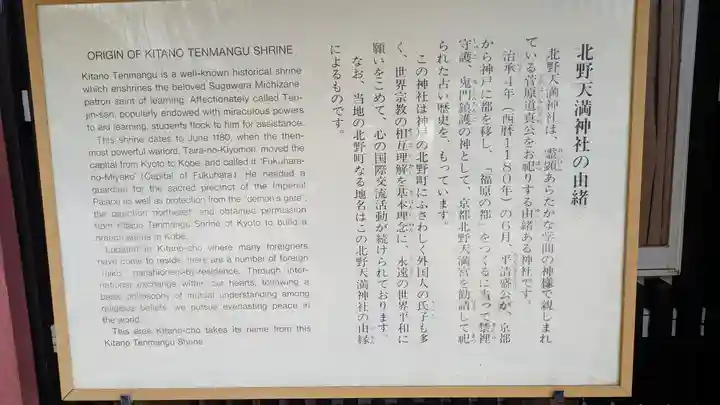 ORIGIN OF KITANO TENMANGU SHRINE
Kitano Tenmangu is a well-known historical shrine
which enshrines the beloved Sugawara Michizane,
patron saint of learning. Affectionately called Ten-
jin-san, popularly endowed with miraculous powers
to aid learning, students flock to him for assistance.
This shrine dates to June 1180, when the then-
most powerful warlord, Taira-no-Kiyomori, moved the
capital from Kyoto to Kobe and called it 'Fukuhara-
no-Miyako' (Capital of Fukuhara). He needed a
guardian for the sacred precinct of the Imperial
Palace as well as protection from the "demon's gate",
the direction northeast, and obtained permission
from Kitano Tenmangu Shrine of Kyoto to build a
branch shrine in Kobe.
Located in Kitano-cho where many foreigners
have come to reside, there are a number of foreign
parishioners-by-residence. Through inter-
national exchange within our hearts, following a
basic philosophy of mutual understanding among
religious beliefs, we pursue everlasting peace in
the world.
This area Kitano-cho takes its name from this
Kitano Tenmangu Shrine.
北野天満神社の由緒
北野天満神社は、霊顕あらたかな学問の神様で親しまれ
ている菅原道真公をお祀りする由緒ある神社です。
治承4年(西暦1180年)の6月、平清盛公が、京都
から神戸に都を移し、「福原の都」をつくるに当って禁裡
守護、鬼門鎮護の神として、京都北野天満宮を勧請して祀
られた古い歴史を、もっています。
この神社は神戸の北野町にふさわしく外国人の氏子も多
く、世界宗教の相互理解を基本理念に、永遠の世界平和に
願いをこめて、心の国際交流活動が続けられております。
なお、当地の北野町なる地名はこの北野天満神社の由縁
によるものです。